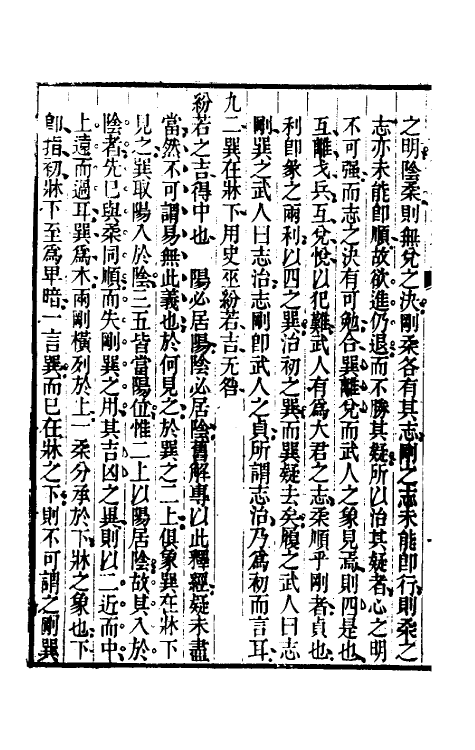 之明陰柔則無兌之決剛柔各有其志剛之志未能卽行則柔之
志亦未能卽順故欲進仍退而不勝其疑所以治其疑者心之明
不可强而志之決有可勉合巽離兌而武人之象見焉則四是也
互離戈兵互兌悅以犯難武人有爲大君之志柔順乎剛者貞也
利卽象之兩利以四之巽治初之巽而巽疑去矣履之武人曰志
剛巽之武人曰志治志剛卽武人之貞所謂志治乃爲初而言耳
九二巽在牀下用史巫紛若吉无咎
紛若之吉得中也　陽必居陽陰必居陰舊解專以此釋經疑未盡
當然不可謂易無此義也於何見之於巽之二上俱象巽在牀下
見之巽取陽入於陰三五皆當陽位惟二上以陽居陰故其入於
陰者先已與柔同順而失剛巽之用其吉凶之異則以二近而中
上遠而過耳巽爲木兩剛橫列於上一柔分承於下牀之象也下
卽指初牀下至爲卑暗一言巽而已在牀之下則不可謂之剛巽